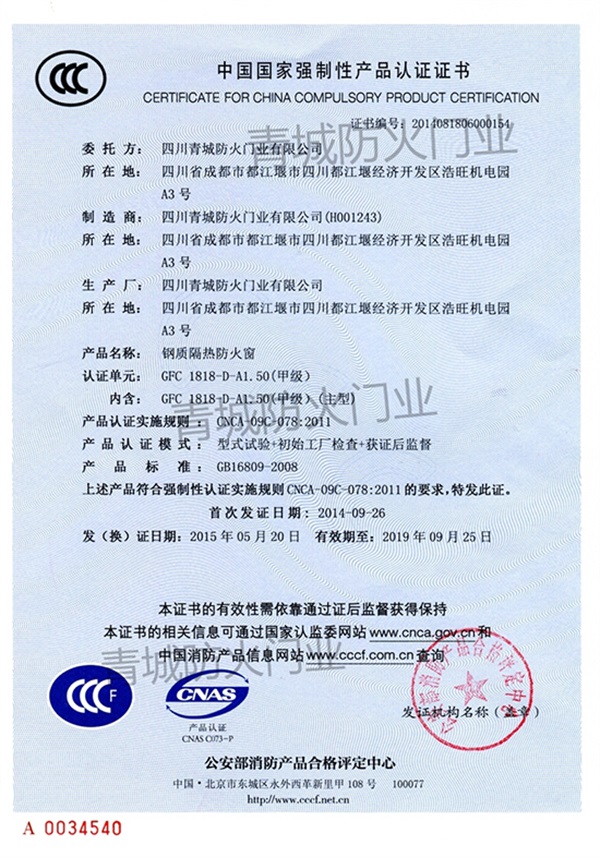 中国国家强制性产品认证证书
CERTIFICATE FOR CHINA COMPULSORY PRODUCT CERTIFICATION
证书编号: 2014081806000154
青城防火门业
委托方: 四川青城防火门业有限公司
所在地: 四川省成都市都江堰市四川都江堰经济开发区浩旺机电园
A3号
制造商: 四川青城防火门业有限公司(H001243)
所在地: 四川省成都市都江堰市四川都江堰经济开发区浩旺机电园
A3号
生产厂: 四川青城防火门业有限公司
所在地: 四川省成都市都江堰市四川都江堰经济开发区浩旺机电园
A3号
产品名称: 钢质隔热防火窗
认证单元: GFC 1818-D-A1.50(甲级)
内含: GFC 1818-D-A1.50(甲级)(主型)
青城防火门业
产品认证实施规则: CNCA-09C-078:2011
产品认证模式: 型式试验+初始工厂检查+获证后监督
产品标准: GB16809-2008
上述产品符合强制性认证实施规则CNCA-09C-078:2011的要求,特发此证。
首次发证日期: 2014-09-26
发(换)证日期: 2015年05月20日 有效期至: 2019年09月25日
本证书的有效性需依靠通过证后监督获得保持
本证书的相关信息可通过国家认监委网站www.cnca.gov.cn和
中国消防产品信息网站www.cccf.com.cn查询
青城防火门业
CCC F
CNAS
产品认证
CNAS C073-P
公安部消防产品合格评定中心
发证机构名称(盖章)
公安部消防产品合格评定中心
中国·北京市东城区永外西革新里甲108号 100077
http://www.cccf.net.cn
A 0034540